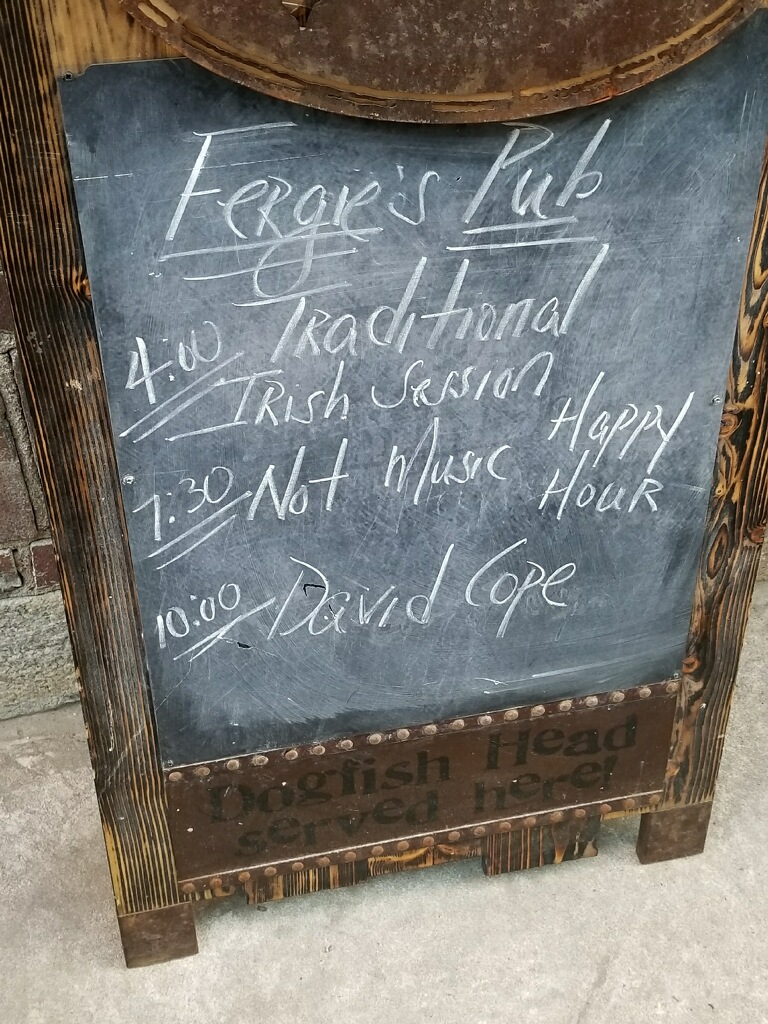 Fergie's Pub
4:00 Traditional
Irish Session
7:30 Not Music Happy
Hour
10:00 David Cope
Dogfish Head
served here!